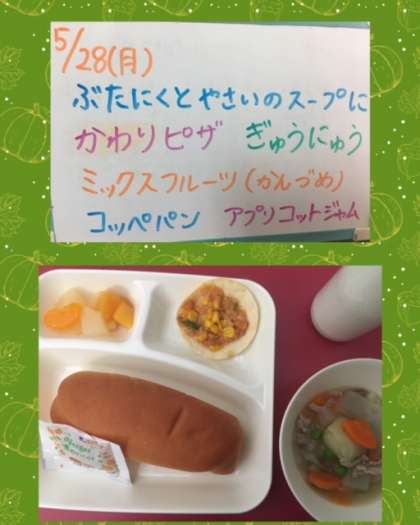 5/28(月)
ぶたにくとやさいのスープに
かわりピザ ぎゅうにゅう
ミックスフルーツ(かんづめ)
コッペパン アプリコットジャム